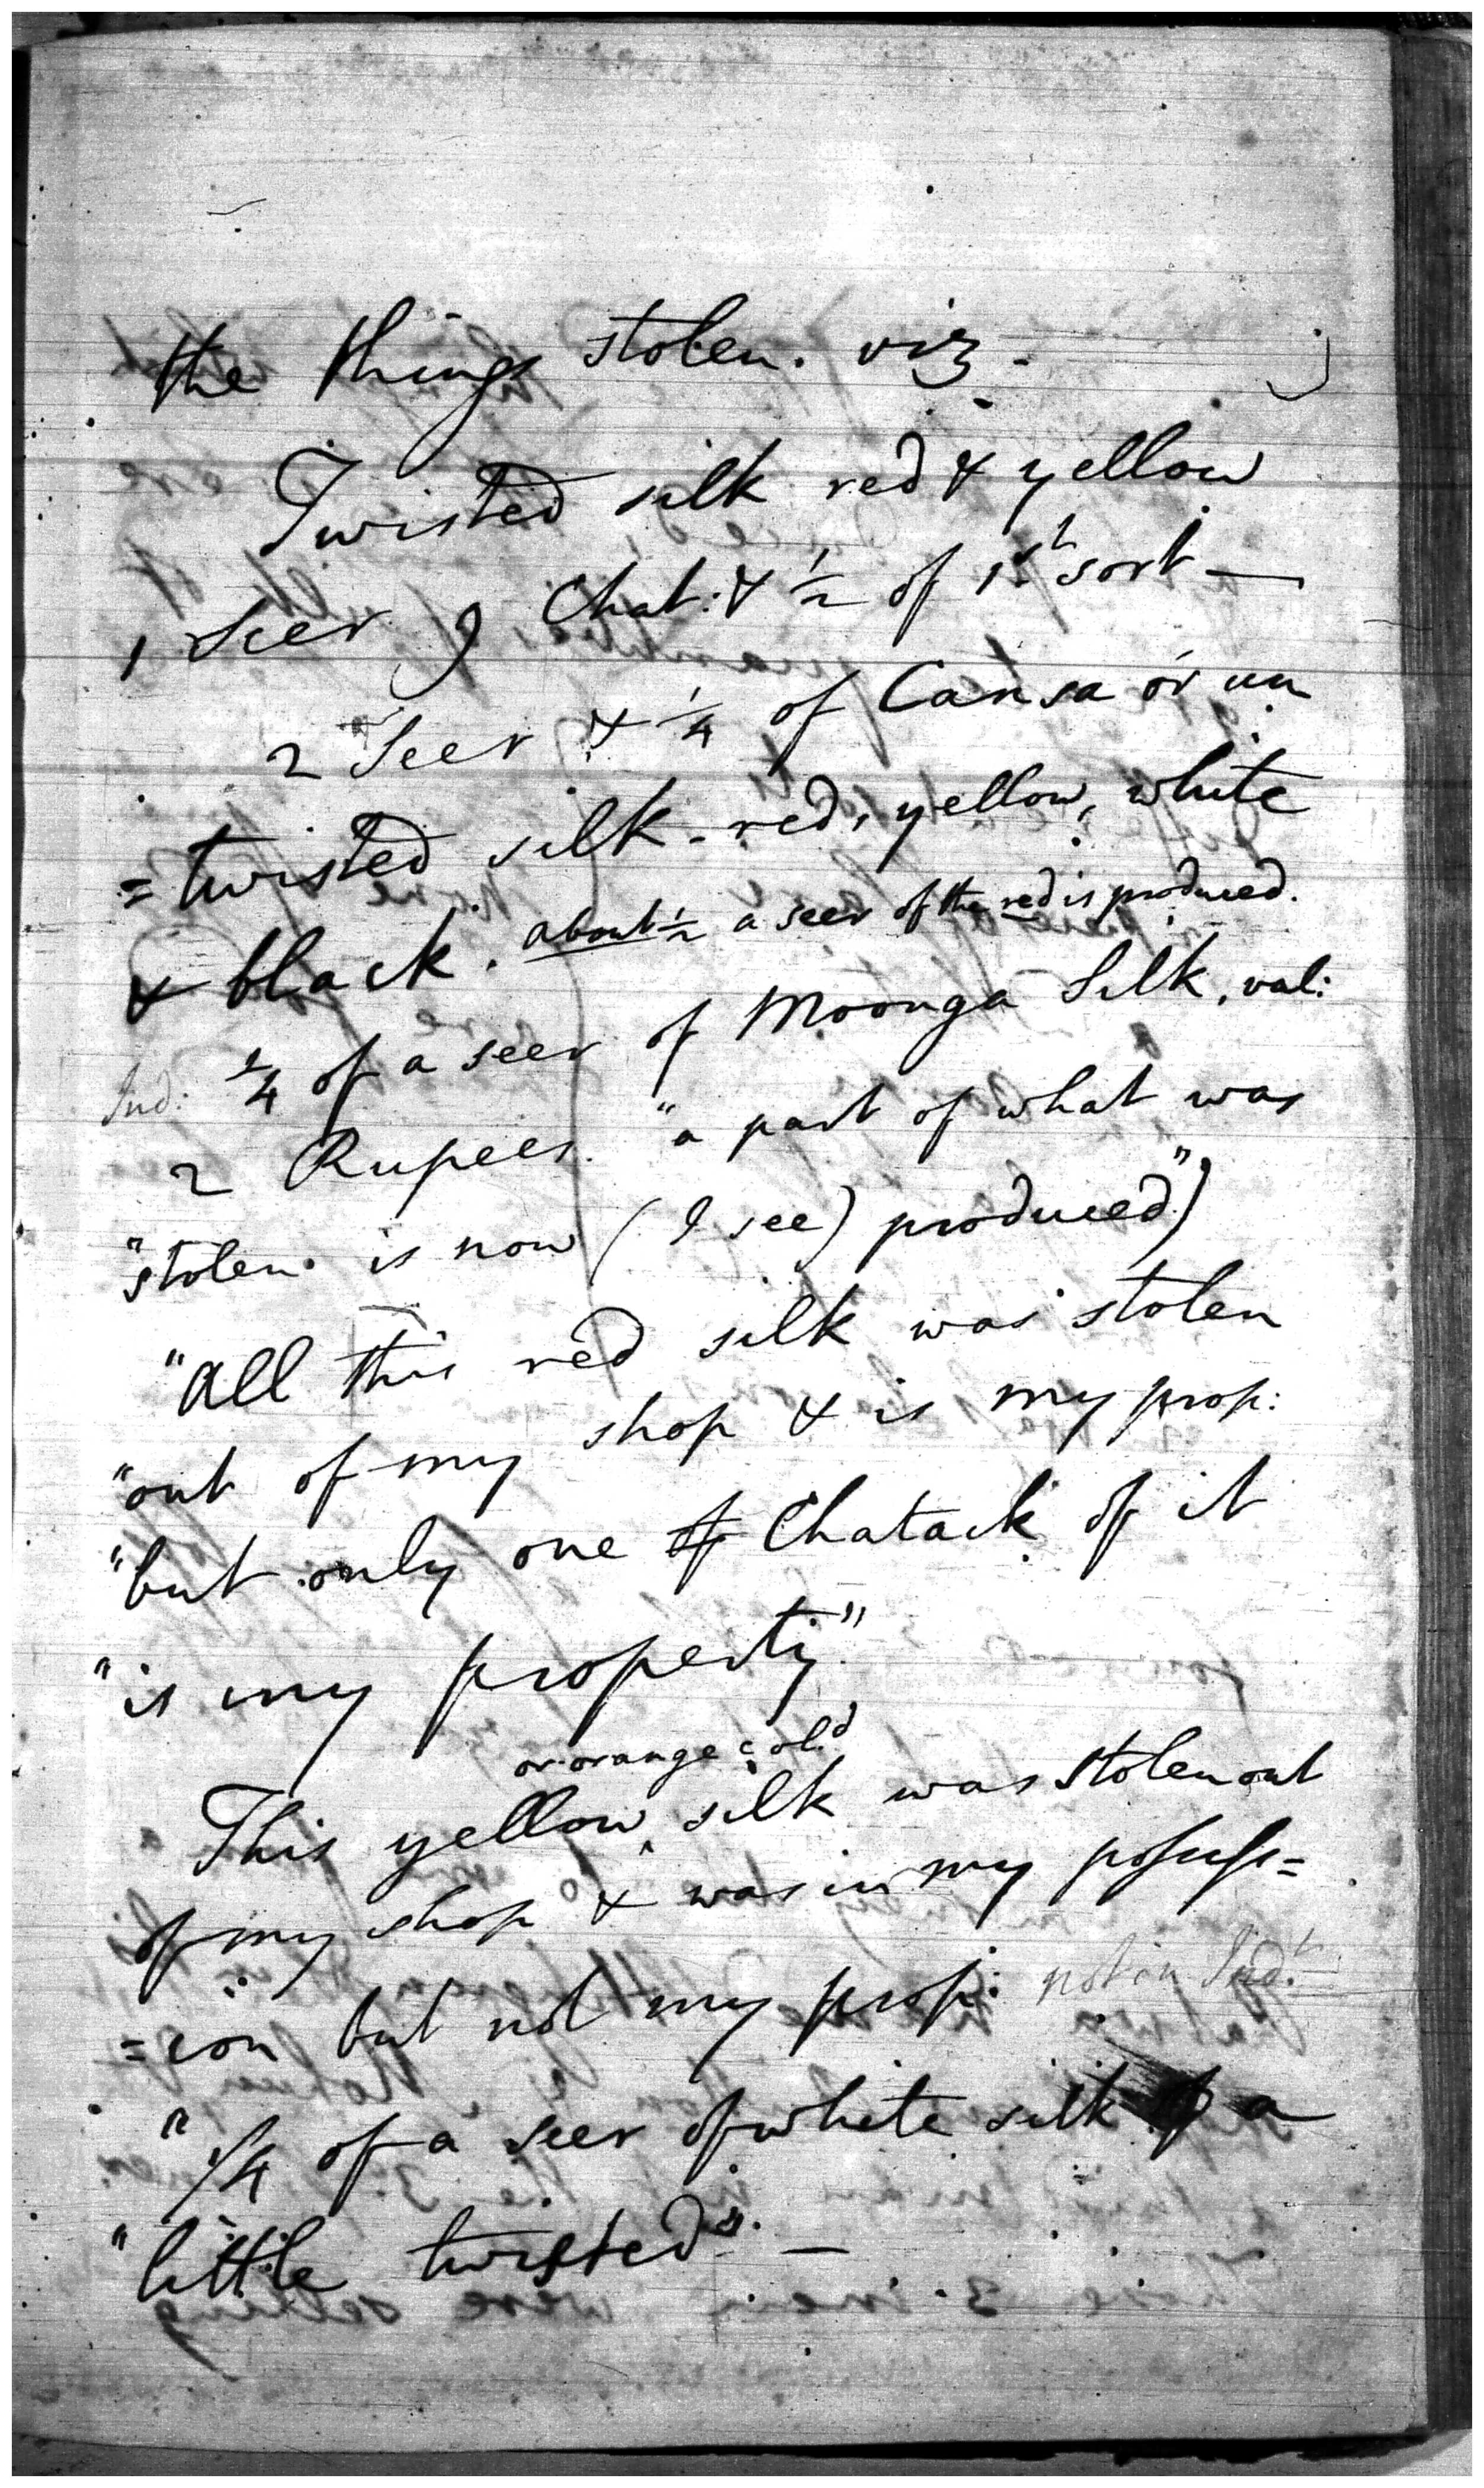 the things stolen. viz.
Twisted silk red & yellow
1 Seer 9 Chat: & ½ of 1st sort —
2 Seer & ¼ of Cansa or un
= twisted silk - red, yellow, white
& black. about ½ a seer of the red is produced.
Ind: ¼ of a seer of Moonga Silk, val:
2 Rupees. "a part of what was
"stolen. is now (I see) produced")
"All this red silk was stolen
"out of my shop & is my prop:
"but only one Chatack of it
"is my property"
or orange col.d
This yellow ‸ silk was stolen out
of my shop & was in my possess=
=ion but not my prop: not in Ind.t
"¼ of a seer of white silk a
"little twisted". —